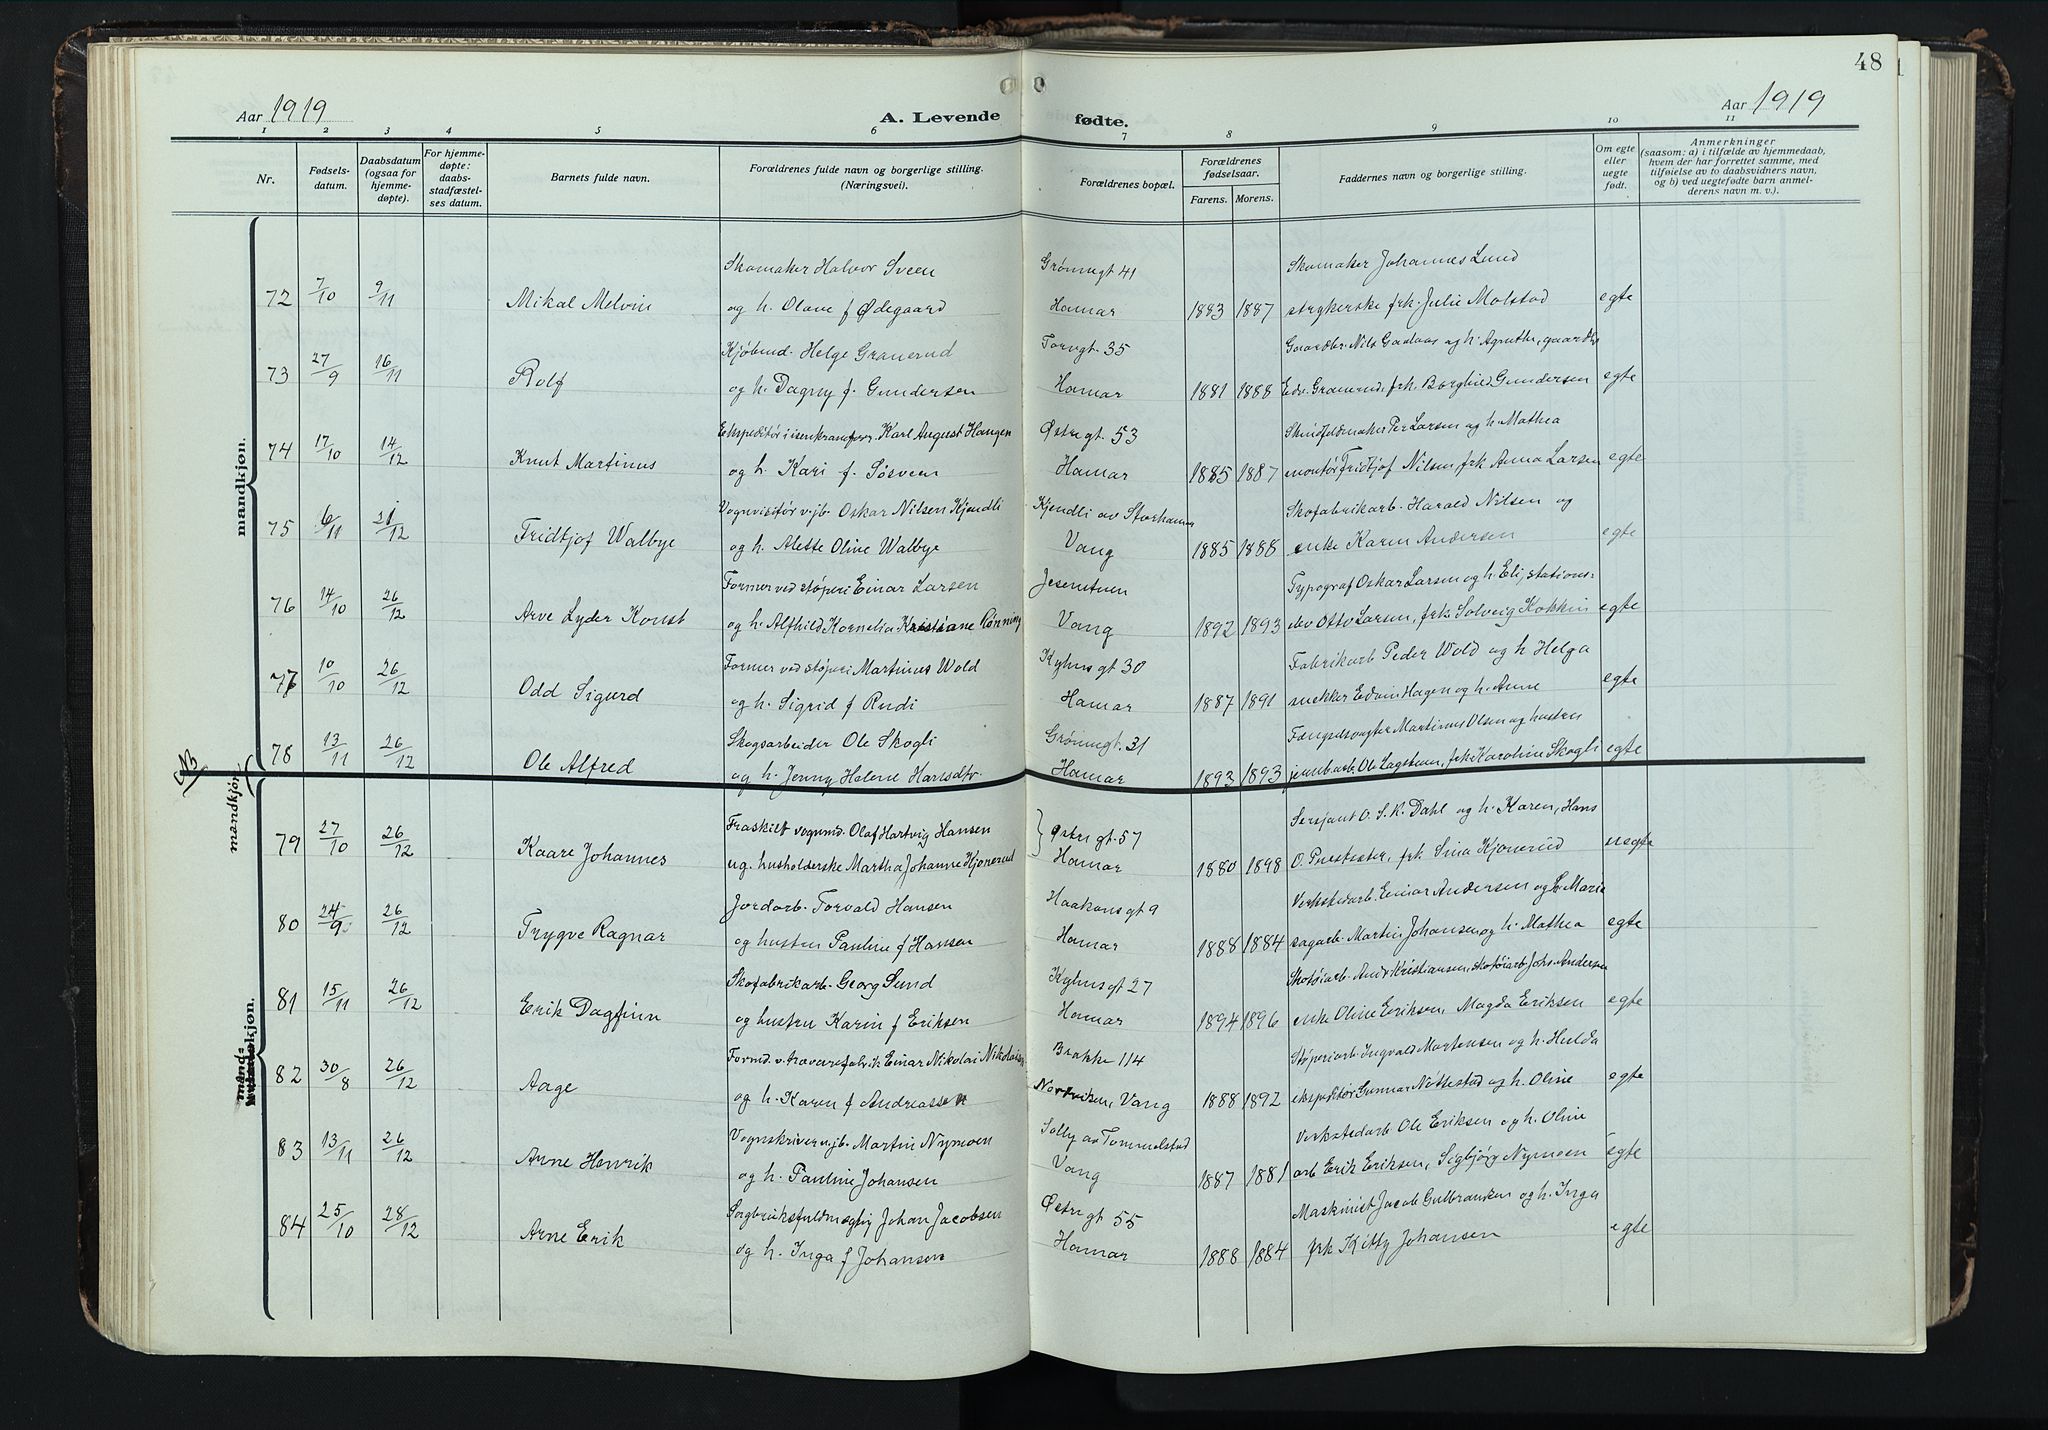 48
Aar 1919
A. Levende fødte.
Aar 1919
1 2 3 4 5 6 7 8 9 10 11
Nr.
Fødsels-
datum.
Daabsdatum
(ogsaa for
hjemme-
døpte).
For hjemme-
døpte:
daabs-
stadfæstel-
ses datum.
Barnets fulde navn.
Forældrenes fulde navn og borgerlige stilling.
(Næringsvei).
Forældrenes bopæl.
Forældrenes
fødselsaar.
Farens. Morens.
Faddernes navn og borgerlige stilling.
Om egte
eller
uegte
født.
Anmerkninger
(saasom: a) i tilfælde av hjemmedaab,
hvem der har forrettet samme, med
tilføielse av to daabsvidners navn,
og b) ved uegtefødte barn anmel-
derens navn m. v.).
mandkjøn.
Skomaker Halvor Sveen Grønnegt 41 Skomaker Johannes Lund
72 7/10 9/11 Mikal Melvin og h. Olave f Ødegaard Hamar 1883 1887 strykerske frk. Julie Molstad egte
Kjøbmd. Helge Granerud Torvgt. 35 Gaardbr. Nils Gaalaas og h. Agnethe, gaardbr
73 27/9 16/11 Rolf og h. Dagny f. Gundersen Hamar 1881 1888 Edv. Granerud, frk. Borghild Gundersen egte
Ekspeditør i isenkramforr. Karl August Haugen Østregt 53 Skindfeldmaker Per Larsen og h. Mathea
74 17/10 14/12 Knut Martinus og h. Kari f. Søsveen Hamar 1885 1887 montør Fridtjof Nilsen, frk Anna Larsen egte
Vognvisitør v. jb. Oskar Nilsen Kjendli Kjendli av Storhamar Skofabrikarb. Harald Nilsen og
75 6/11 21/12 Fridtjof Walbye og h. Alette Oline Walbye Vang 1885 1888 enke Karen Andersen egte
Former ved støperi Einar Larsen Jesnetuen Typograf Oskar Larsen og h. Eli, stations=
76 14/10 26/12 Arve Lyder Konst og h. Alfhild Kornelia Kristiane Rønning Vang 1892 1893 elev Otto Larsen, frk. Solveig Kokkin egte
Former ved støperi Martinus Wold Kyhns gt 30 Fabrikarb Peder Wold og h Helga
77 10/10 26/12 Odd Sigurd og h. Sigrid f Rudi Hamar 1887 1891 snekker Edom Hagen og h. Anne egte
Skogsarbeider Ole Skogli Grønnegt. 31 Fængselsvagter Martinus Olsen og hustru
78 13/11 26/12 Ole Alfred og h. Jenny Helene Hansdtr. Hamar 1893 1893 jernbarb. Ole Lagstuen, frk Karoline Skogli egte
NB
mandkjøn
Fraskilt vognmd. Olaf Hartvig Hansen Østregt. 57 Sersjant O. S. K. Dahl og h. Karen, Hans
79 27/10 26/12 Kaare Johannes ug. husholderske Martha Johanne Kjonerud Hamar 1880 1898 O. Prestester, frk Sina Kjonerud uegte
Jordarb. Torvald Hansen Haakons gt 9 Verkstedarb. Einar Andersen og h. Marie
80 24/9 26/12 Trygve Ragnar og hustru Pauline f Hansen Hamar 1888 1884 sagarb. Martin Johansen og h. Mathea egte
Skofabrikarb. Georg Sund Kyhnsgt 27 Skotøiarb. Andr Kristiansen, skotøiarb Johs. Andersen
81 15/11 26/12 Erik Dagfinn og hustru Karin f Eriksen Hamar 1894 1896 enke Oline Eriksen, Magda Eriksen egte
mand=
kjøn.
Formd. v. travarefabrik Einar Nikolai Nikolaisen Brakke 114 Støperiarb Ingvald Mortensen og h. Hulda
82 30/8 26/12 Aage og h. Karen f Andreassen Norviken, Vang 1888 1892 ekspeditør Gunnar Nøttestad og h. Oline egte
Vognskriver v. jb. Martin Nymoen Solly av Tommelstad Verkstedarb Ole Eriksen og h. Oline
83 13/11 26/12 Arne Henrik og h. Pauline Johansen Vang 1887 1881 arb Erik Eriksen, Sigbjørg Nymoen egte
Sagbruksfuldmægtig Johan Jacobsen Østregt 55 Maskinist Jacob Gulbrandsen og h. Inga
84 25/10 28/12 Arne Erik og h. Inga f Johansen Hamar 1888 1884 frk Kitty Johansen egte